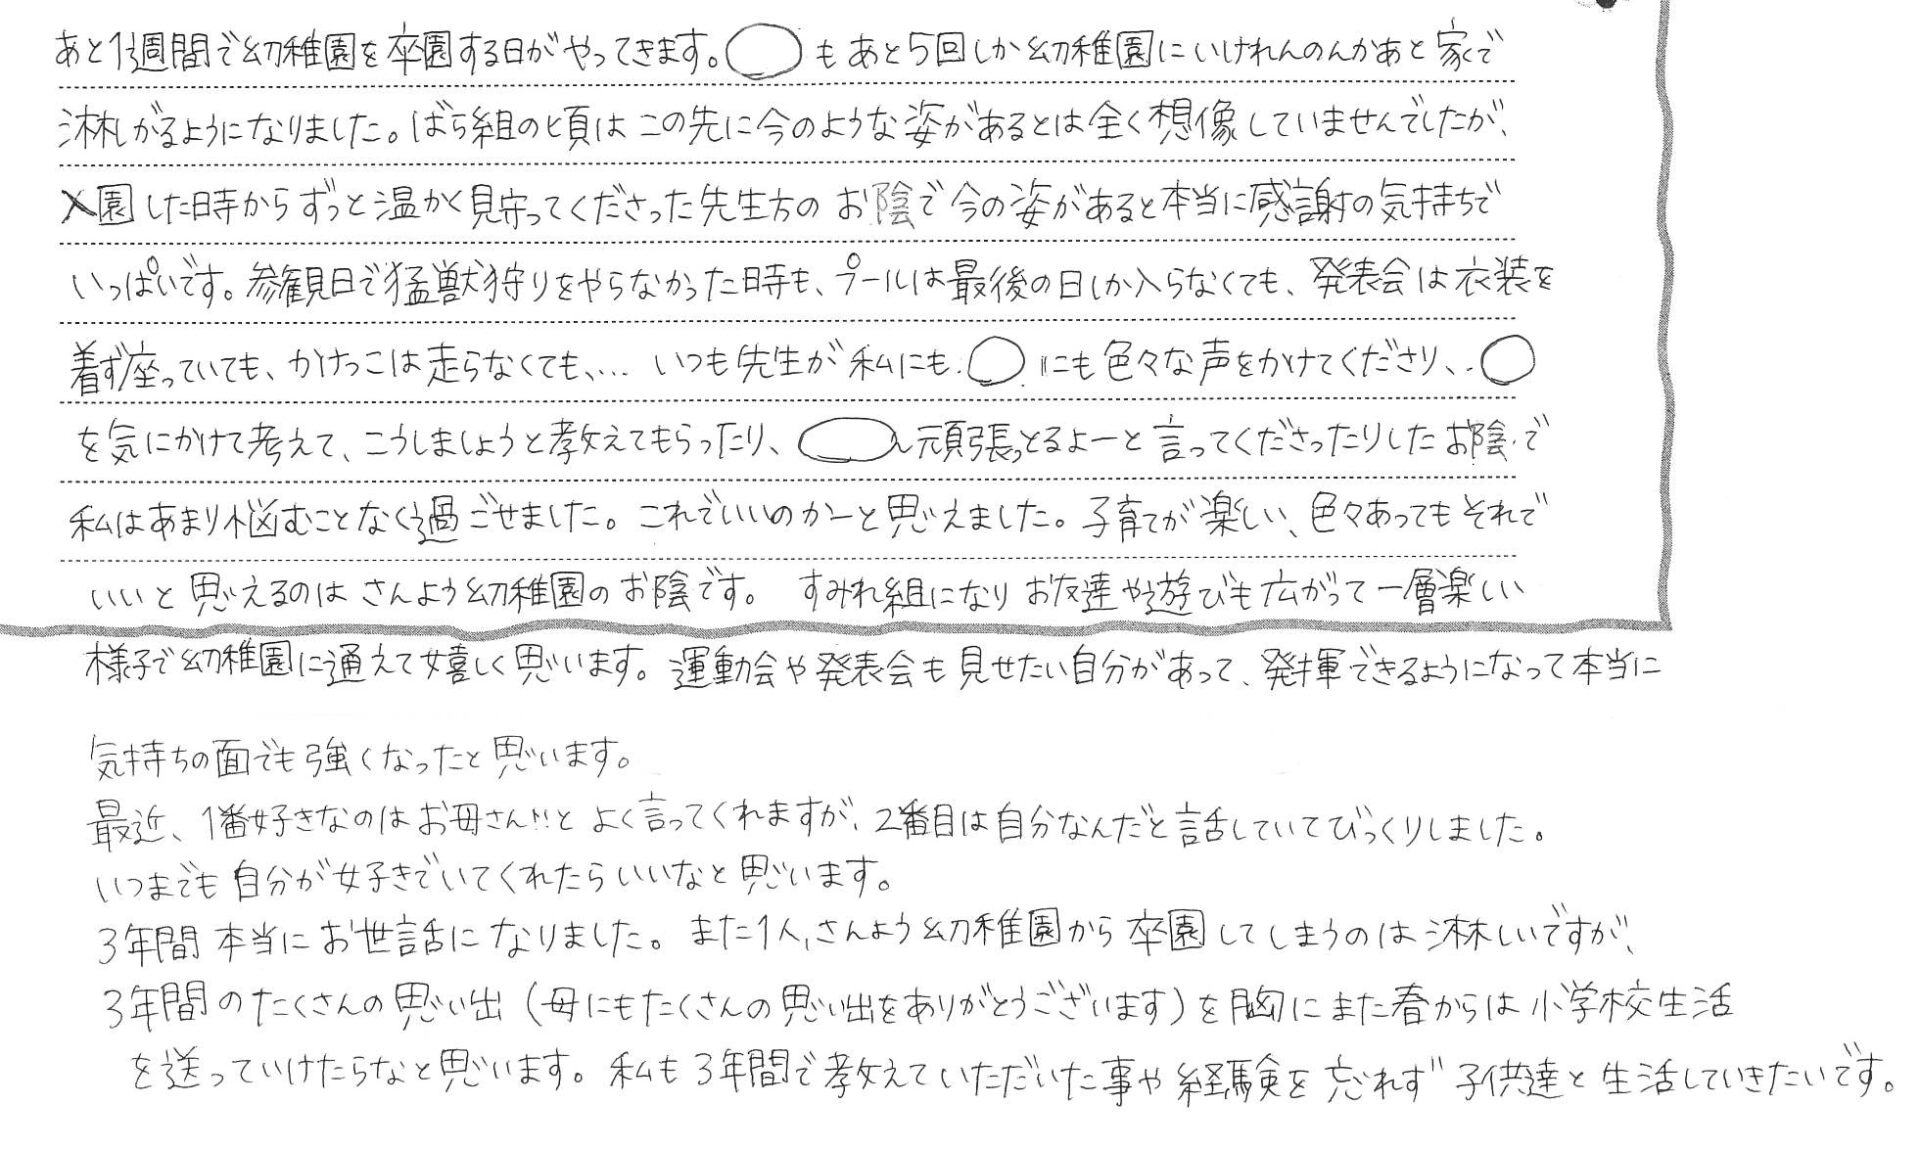 あと1週間で幼稚園を卒園する日がやってきます。◯もあと5回しか幼稚園にいけれんのんかあと家で
淋しがるようになりました。ばら組の頃はこの先に今のような姿があるとは全く想像していませんでしたが、
入園した時からずっと温かく見守ってくださった先生方のお陰で今の姿があると本当に感謝の気持ちで
いっぱいです。参観日で猛獣狩りをやらなかった時も、プールは最後の日しか入らなくても、発表会は衣装を
着ず座っていても、かけっこは走らなくても、… いつも先生が私にも◯にも色々な声をかけてくださり、◯
を気にかけて考えて、こうしましょうと教えてもらったり、◯ん頑張っとるよーと言ってくださったりしたお陰で
私はあまり悩むことなく過ごせました。これでいいのかーと思えました。子育てが楽しい、色々あってもそれで
いいと思えるのはさんよう幼稚園のお陰です。 すみれ組になりお友達や遊びも広がって一層楽しい
様子で幼稚園に通えて嬉しく思います。運動会や発表会も見せたい自分があって、発揮できるようになって本当に
気持ちの面でも強くなったと思います。
最近、1番好きなのはお母さん!!とよく言ってくれますが、2番目は自分なんだと話していてびっくりしました。
いつまでも自分が好きでいてくれたらいいなと思います。
3年間本当にお世話になりました。また1人、さんよう幼稚園から卒園してしまうのは淋しいですが、
3年間のたくさんの思い出(母にもたくさんの思い出をありがとうございます)を胸にまた春からは小学校生活
を送っていけたらなと思います。私も3年間で教えていただいた事や経験を忘れず子供達と生活していきたいです。